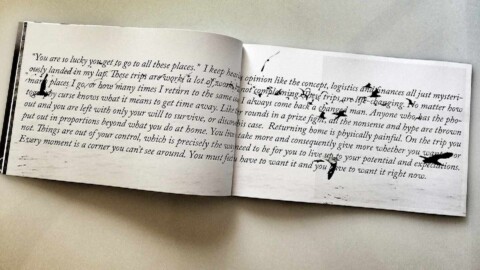 "You are so lucky you get to go to all these places." I keep opinion like the concept, logistics and finances all just mysteri-
ously landed in my lap. These trips are work, a lot of work. not complaining. These trips are life-changing. No matter how
many places I go, or how many times I return to the same I always come back a changed man. Anyone who has the pho-
tography curse knows what it means to get time away. Like rounds in a prize fight, all the nonsense and hype are thrown
out and you are left with only your will to survive, or case. Returning home is physically painful. On the trip you
put out in proportions beyond what you do at home. You intake more and consequently give more whether you want or
not. Things are out of your control, which is precisely the need to be for you to live up to your potential and expectations.
Every moment is a corner you can't see around. You must have to want it and you have to want it right now.